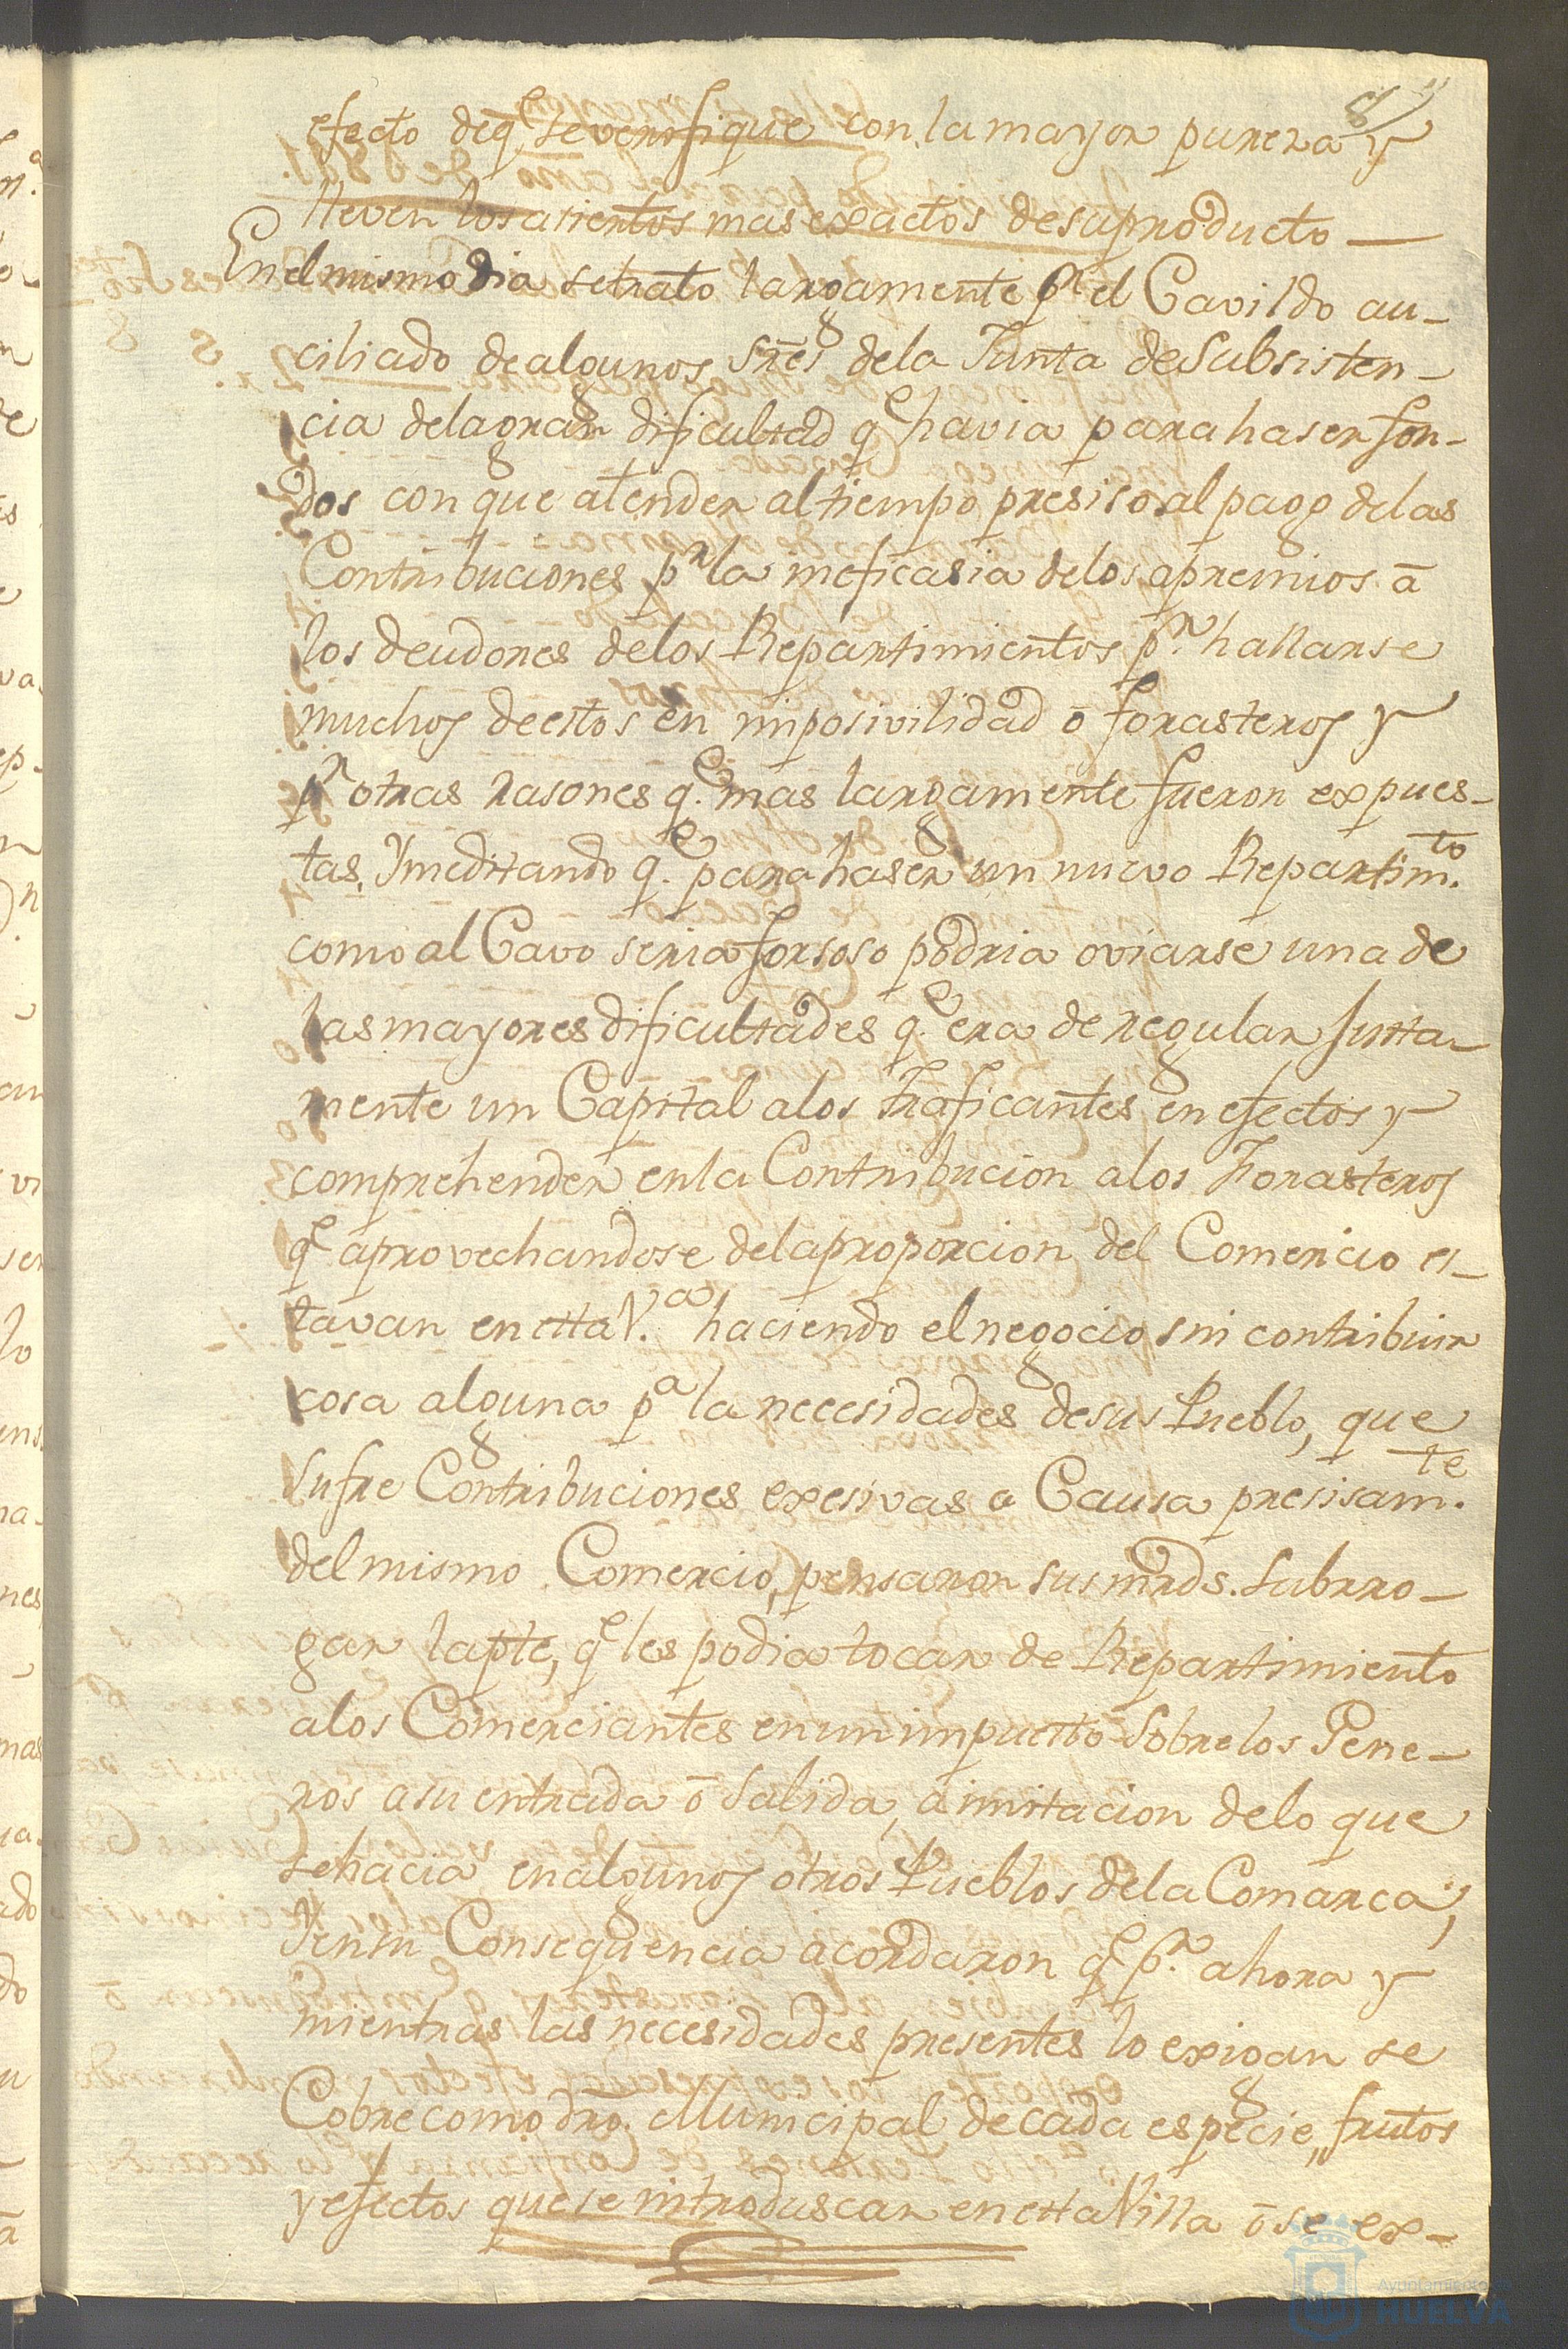 8
efecto deq.e severifique con la mayor purera y
lleven los asientos mas exactos desuproducto —
En el mismo dia setrato largamente p.r el Cavildo au-
ciliado dealgunos Sres dela Junta deSubsisten-
cia delagran dificultad q.e havia para haser fon-
dos con que atender altiempo presiso al pago delas
Contribuciones p.r la ineficasia delos apremios â
los deudores delos Repartimientos p.r hallarse
muchos deestos en imposivilidad ô forasteros y
p.r otras rasones q.e mas largamente fueron expues-
tas, Ymeditando q.e para haser un nuevo Repartim.to
como al Cavo seria forsoso podria oviarse una de
las mayores dificultades q.e era de regular Justa-
mente un Capital alos traficantes en efectos y
comprehender enla Contribucion alos Forasteros
q.e aprovechandose delaproporcion del Comercio es-
tavan en esta V.a haciendo elnegocio sin contribuir
cosa alguna p.a la necesidades desus Pueblo, que
sufre Contribuciones exesivas a Causa presisam.te
delmismo Comercio, pensaron sus mrds. Subrro-
gar lapte, q.e les podia tocar de Repartimiento
alos Comerciantes enun impuesto Sobrelos Gene-
ros asu entrada ô Salida, a imitacion delo que
sehacia enalgunos otros Pueblos dela Comarca,
Yensu Consequencia acordaron q.e p.r ahora y
mientras las necesidades presentes lo exigan se
Cobrecomo dro. Municipal decada especie, frutos
y efectos quese introduscan enesta Villa ô se ex-
Ayuntamiento de
HUELVA